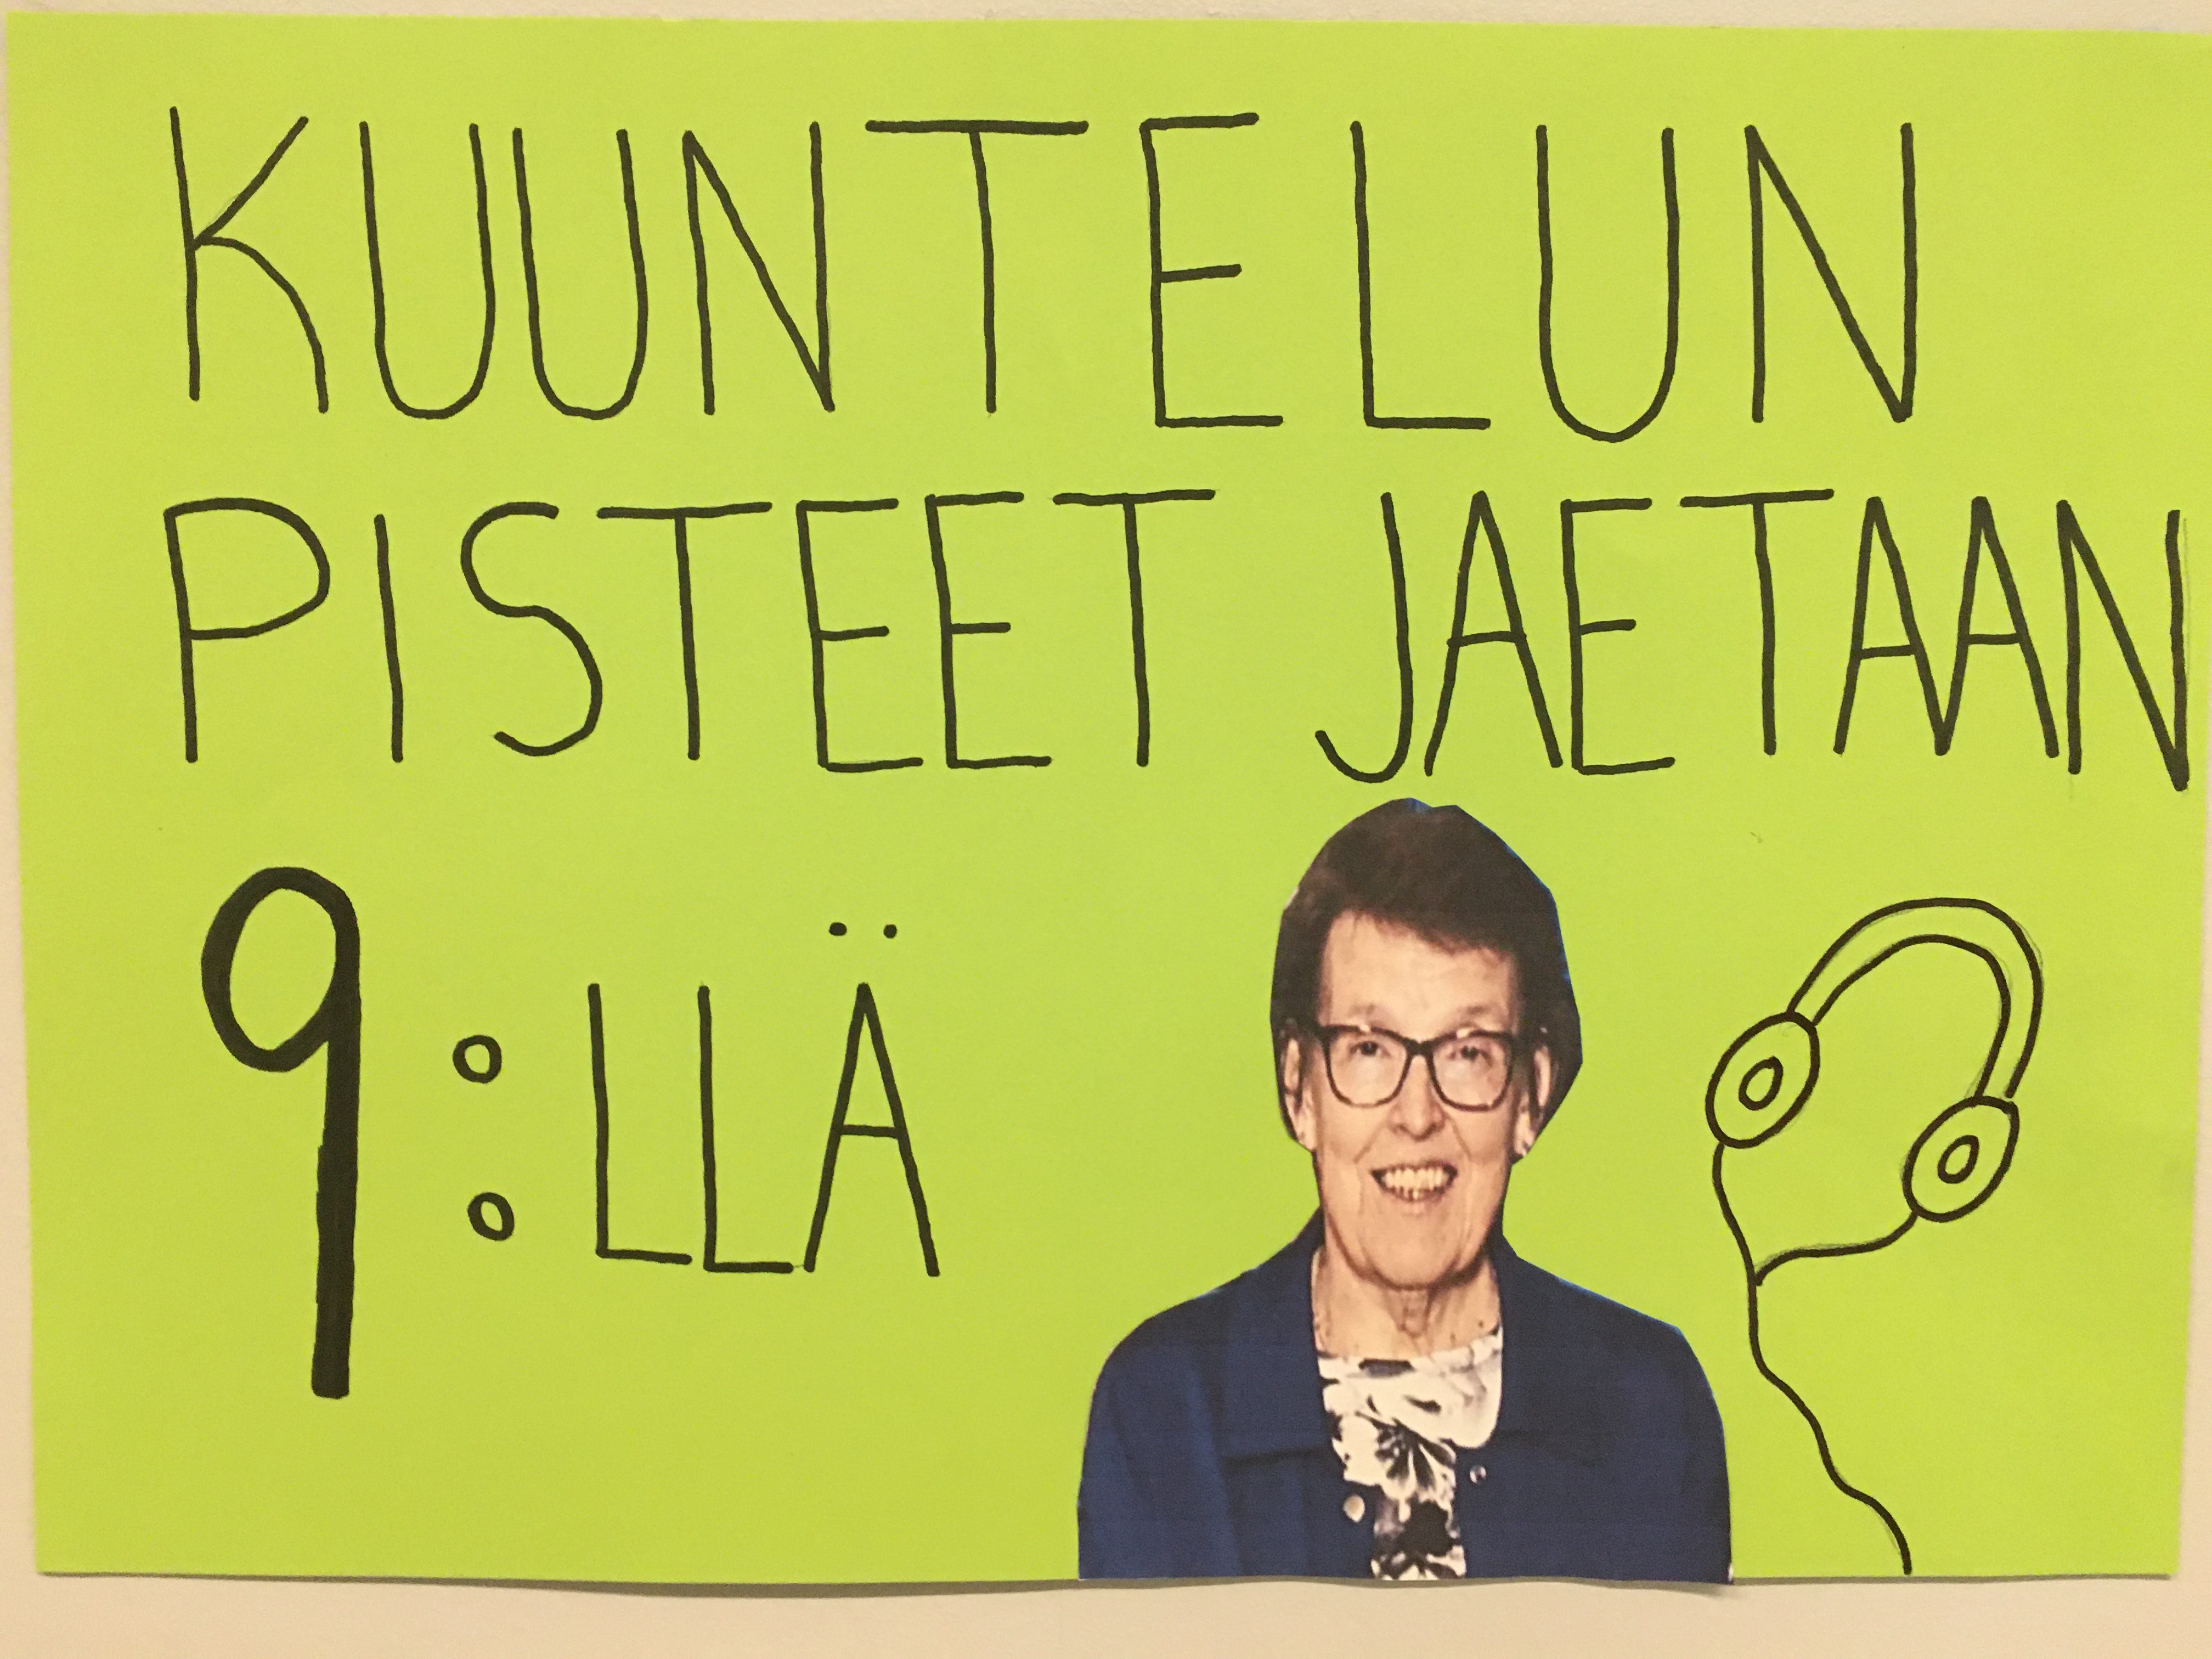 KUUNTELUN
PISTEET JAETAAN
9:LLÄ